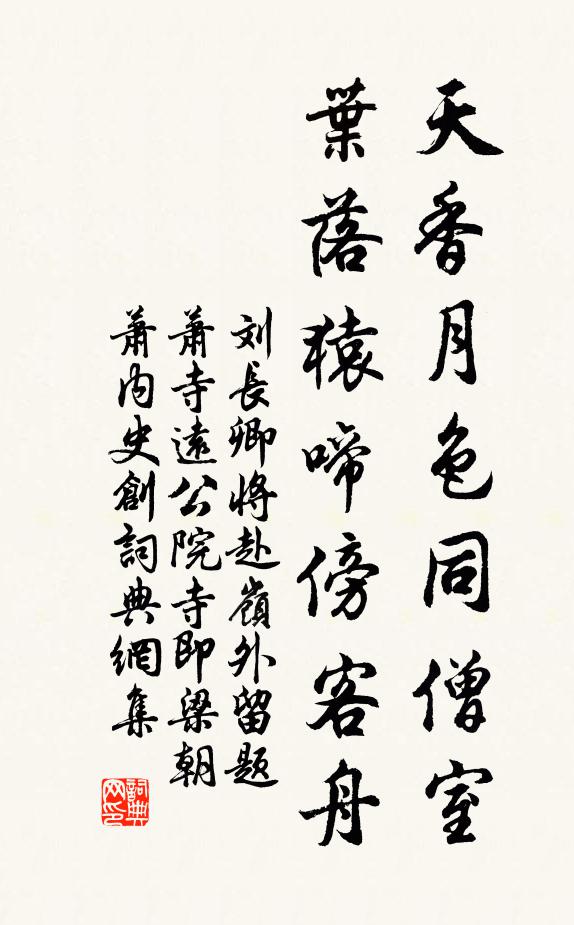 天香月色同僧室
葉落猿啼傍客舟
刘長卿將赴嶺外留題
蕭寺遠公院寺即梁朝
蕭内史創詞典網集
詞典网印